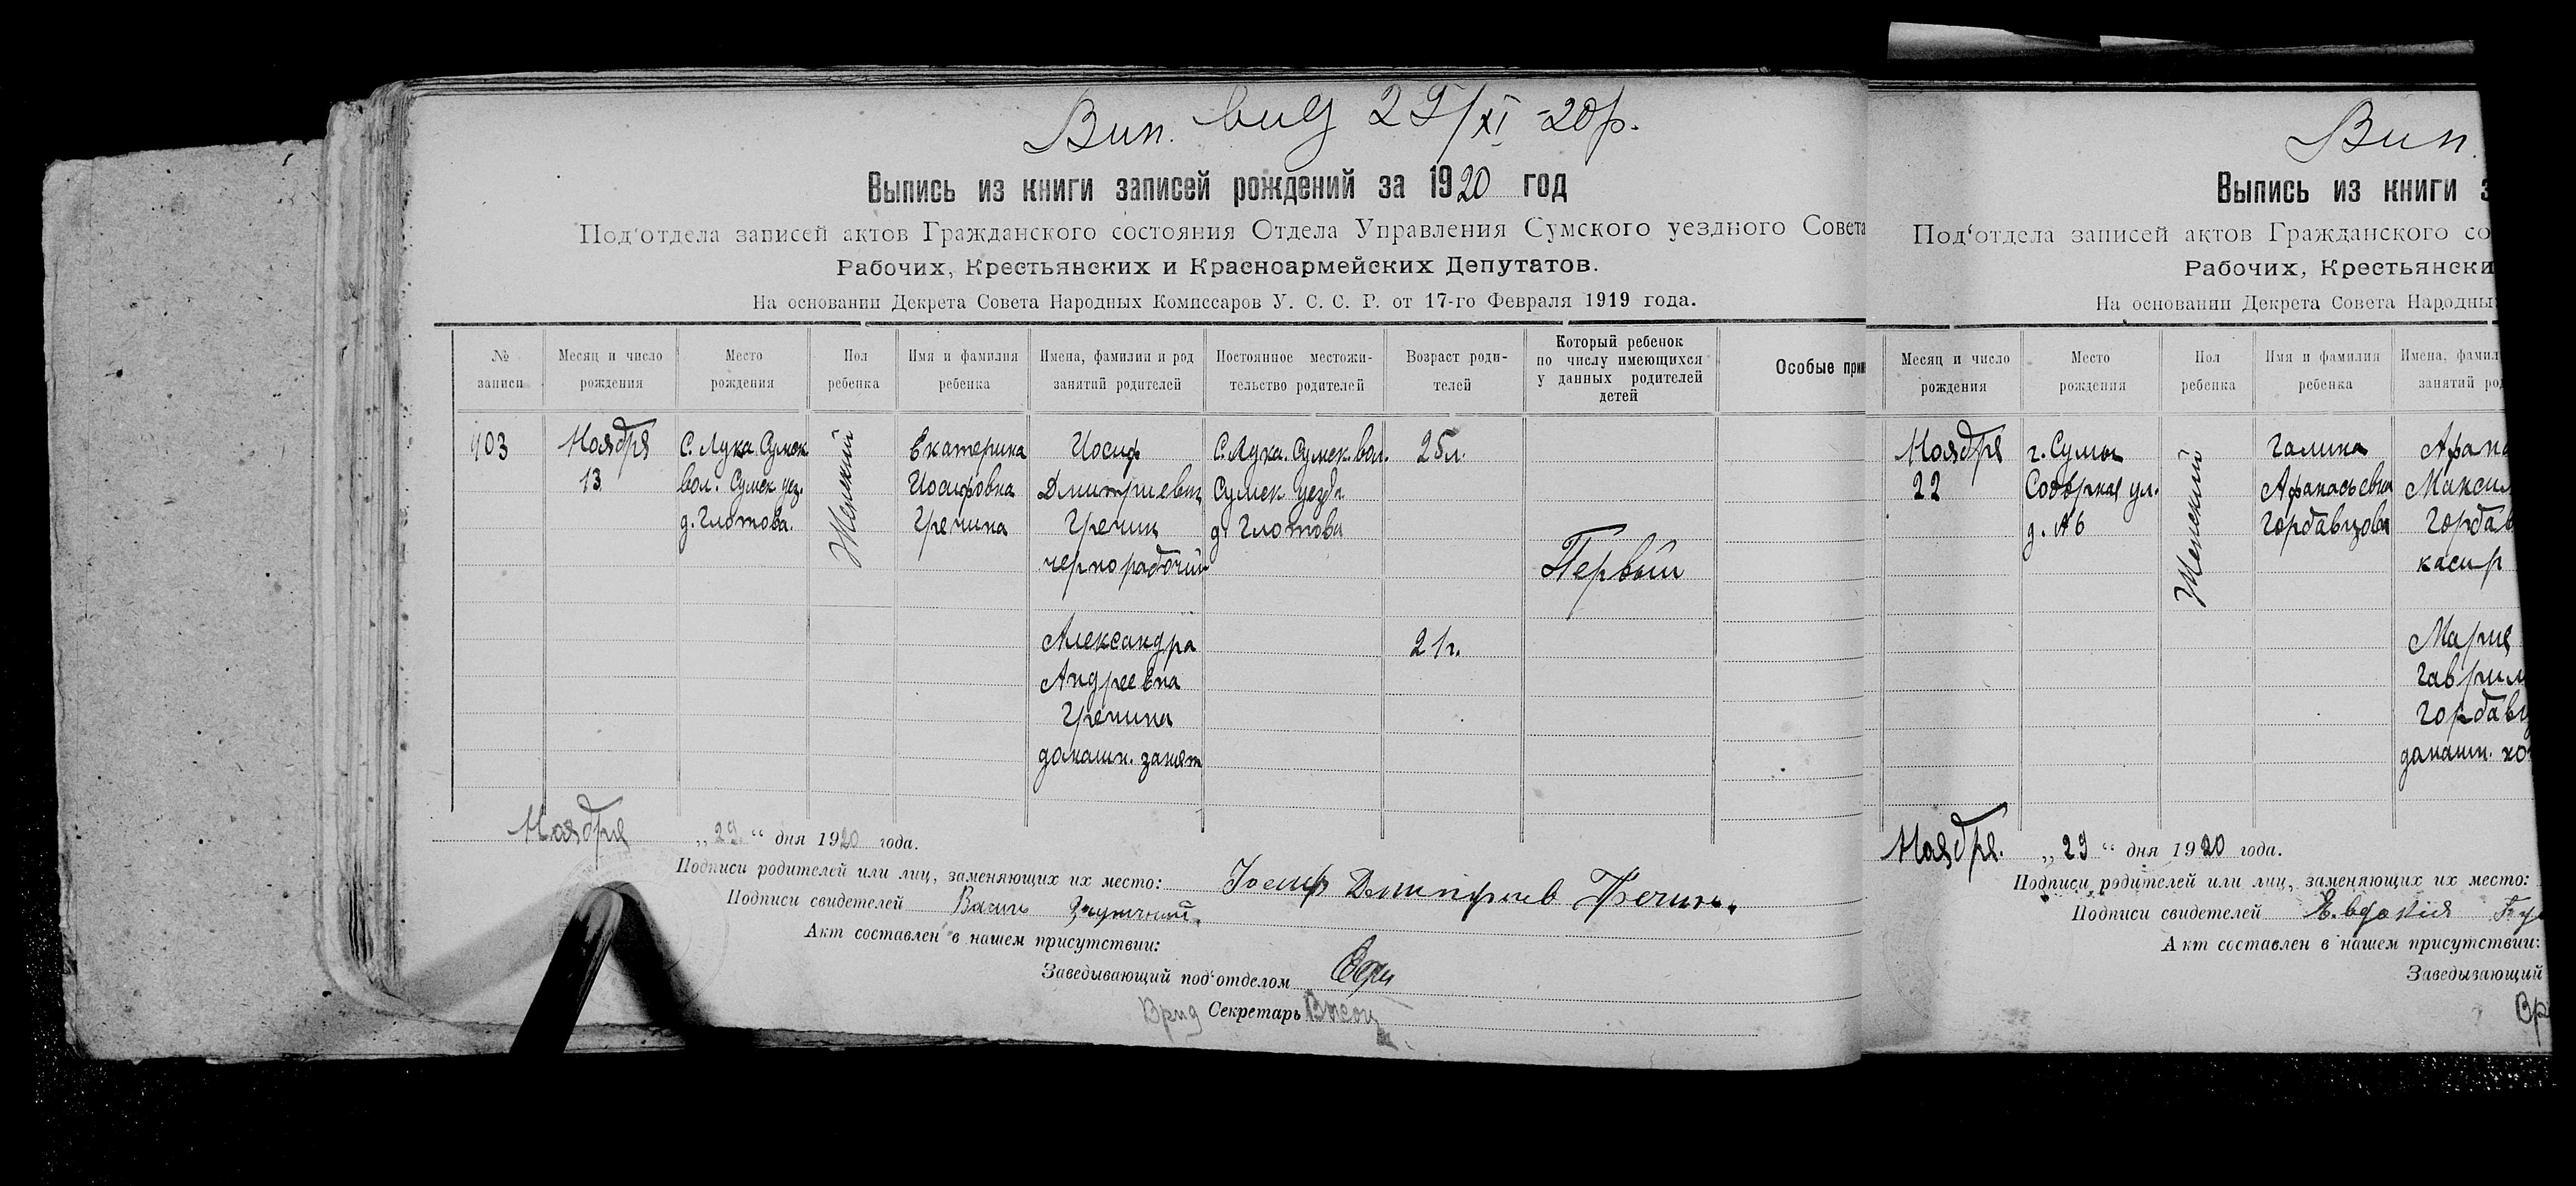 Вип. вид 25/XI -20р.
Выпись из книги записей рождений за 1920 год
Под'отдела записей актов Гражданского состояния Отдела Управления Сумского уездного Совета
Рабочих, Крестьянских и Красноармейских Депутатов.
На основании Декрета Совета Народных Комиссаров У. С. С. Р. от 17-го Февраля 1919 года.
№ записи
Месяц и число рождения
Место рождения
Пол ребенка
Имя и фамилия ребенка
Имена, фамилии и род занятий родителей
Постоянное местожительство родителей
Возраст родителей
Который ребенок по числу имеющихся у данных родителей детей
Особые прим
903
Ноября
13
С. Лука Сумск
вол. Сумск уез.
д. Глотова.
Женский
Екатерина
Иосифовна
Гречина
Иосиф
Дмитриевич
Гречин
чернорабочий
Александра
Андреевна
Гречина
домашн. занят
С. Лука. Сумск. вол.
Сумск уезда
д. Глотова
25 л.
21 г.
Первый
Ноября „29“ дня 1920 года.
Подписи родителей или лиц, заменяющих их место: Іосиф Дмитриев Гречин.
Подписи свидетелей
Акт составлен в нашем присутствии:
Заведывающий под'отделом
Врид Секретарь
Вип.
Выпись из книги з
Под'отдела записей актов Гражданского со
Рабочих, Крестьянски
На основании Декрета Совета Народны
Месяц и число рождения
Место рождения
Пол ребенка
Имя и фамилия ребенка
Имена, фамил
занятий ро
Ноября
22
г. Сумы
Соборная ул.
д. № 6
Женский
Галина
Афанасьевна
Горбавцова
Афана
Максим
Горбав
касир
Мария
Гаврил
Горбавц
домашн. хо
Ноября. „29“ дня 1920 года.
Подписи родителей или лиц, заменяющих их место:
Подписи свидетелей Евдокія
Акт составлен в нашем присутствии:
Заведывающий
Вр